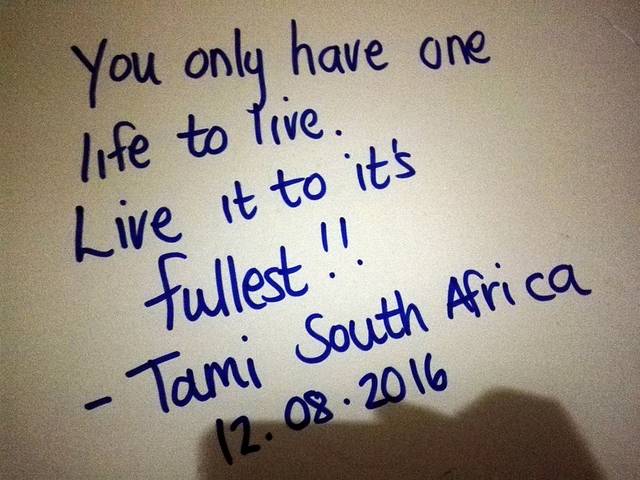 You only have one
life to live.
Live it to it's
fullest!!
- Tami South Africa
12.08.2016